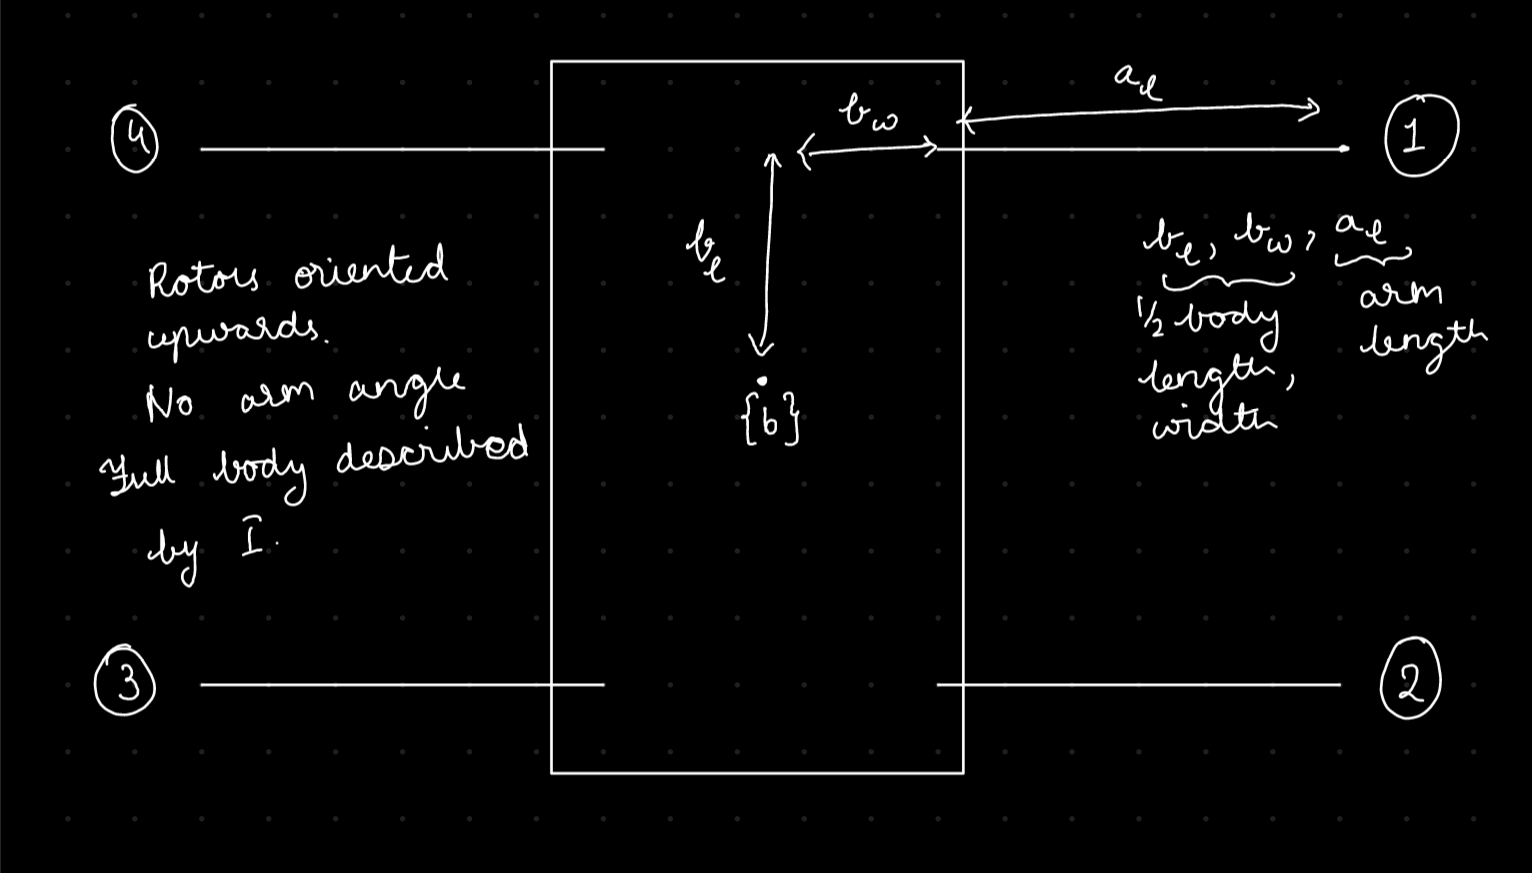 4
b_w
a_l
1
b_l
{b}
Rotors oriented
upwards.
No arm angle
Full body described
by I.
b_l, b_w, a_l,
1/2 body
length,
width
arm
length
3
2